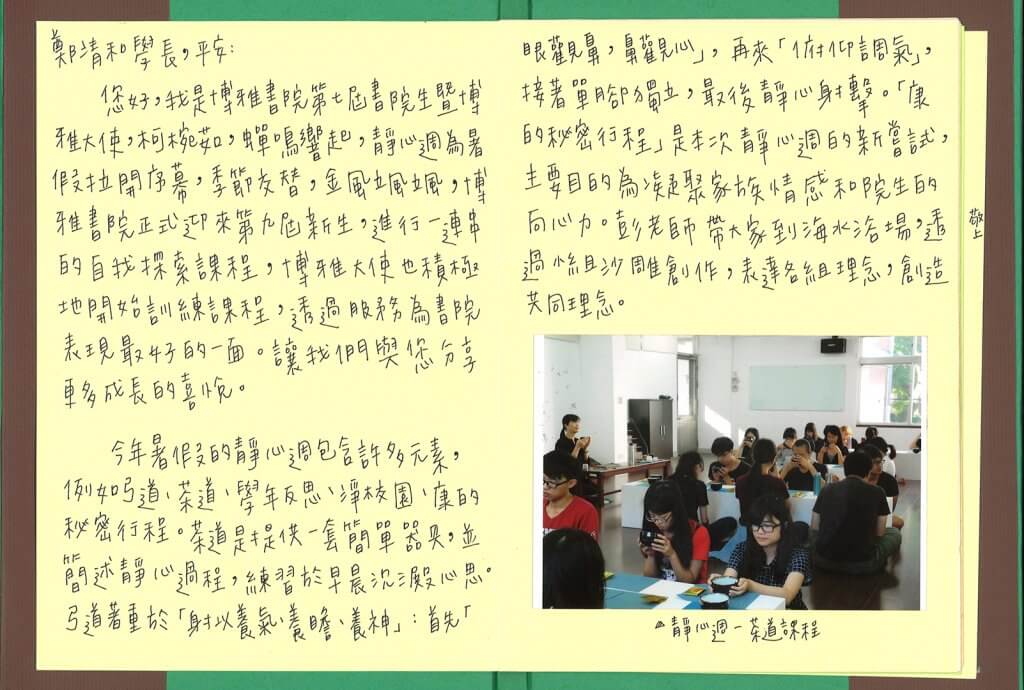 鄭清和學長，平安：
您好，我是博雅書院第七屆書院生暨博
雅大使，柯椀茹，蟬鳴響起，靜心週為暑
假拉開序幕，季節交替，金風立風颯，博
雅書院正式迎來第九屆新生，進行一連串
的自我探索課程，博雅大使也積極
地開始訓練課程，透過服務為書院
表現最好的一面。讓我們與您分享
更多成長的喜悅。
今年暑假的靜心週包含許多元素，
例如弓道、茶道、學年反思、淨校園、康的
秘密行程。茶道是提供一套簡單器具，並
簡述靜心過程，練習於早晨沉澱心思。
弓道著重於「射以養氣、養膽、養神」：首先「
眼觀鼻，鼻觀心」，再來「俯仰調氣」，
接著單腳獨立，最後靜心射擊。「康
的秘密行程」是本次靜心週的新嘗試，
主要目的為凝聚家族情感和院生的
向心力。彭老師帶大家到海水浴場，透
過小組沙雕創作，表達各組理念，創造
共同理念。
敬上
靜心週－茶道課程